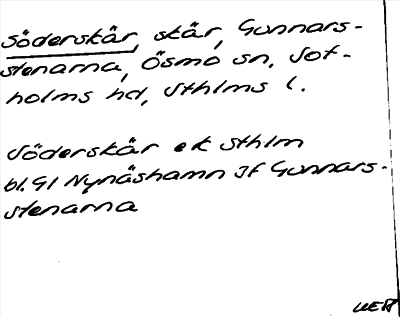 Söderskär, skär, Gunnars-
stenarna, Ösmo sn, Sot-
holms hd, Sthlms l.
Söderskär ek Sthlm
bl. 91 Nynäshamn jf Gunnars-
stenarna